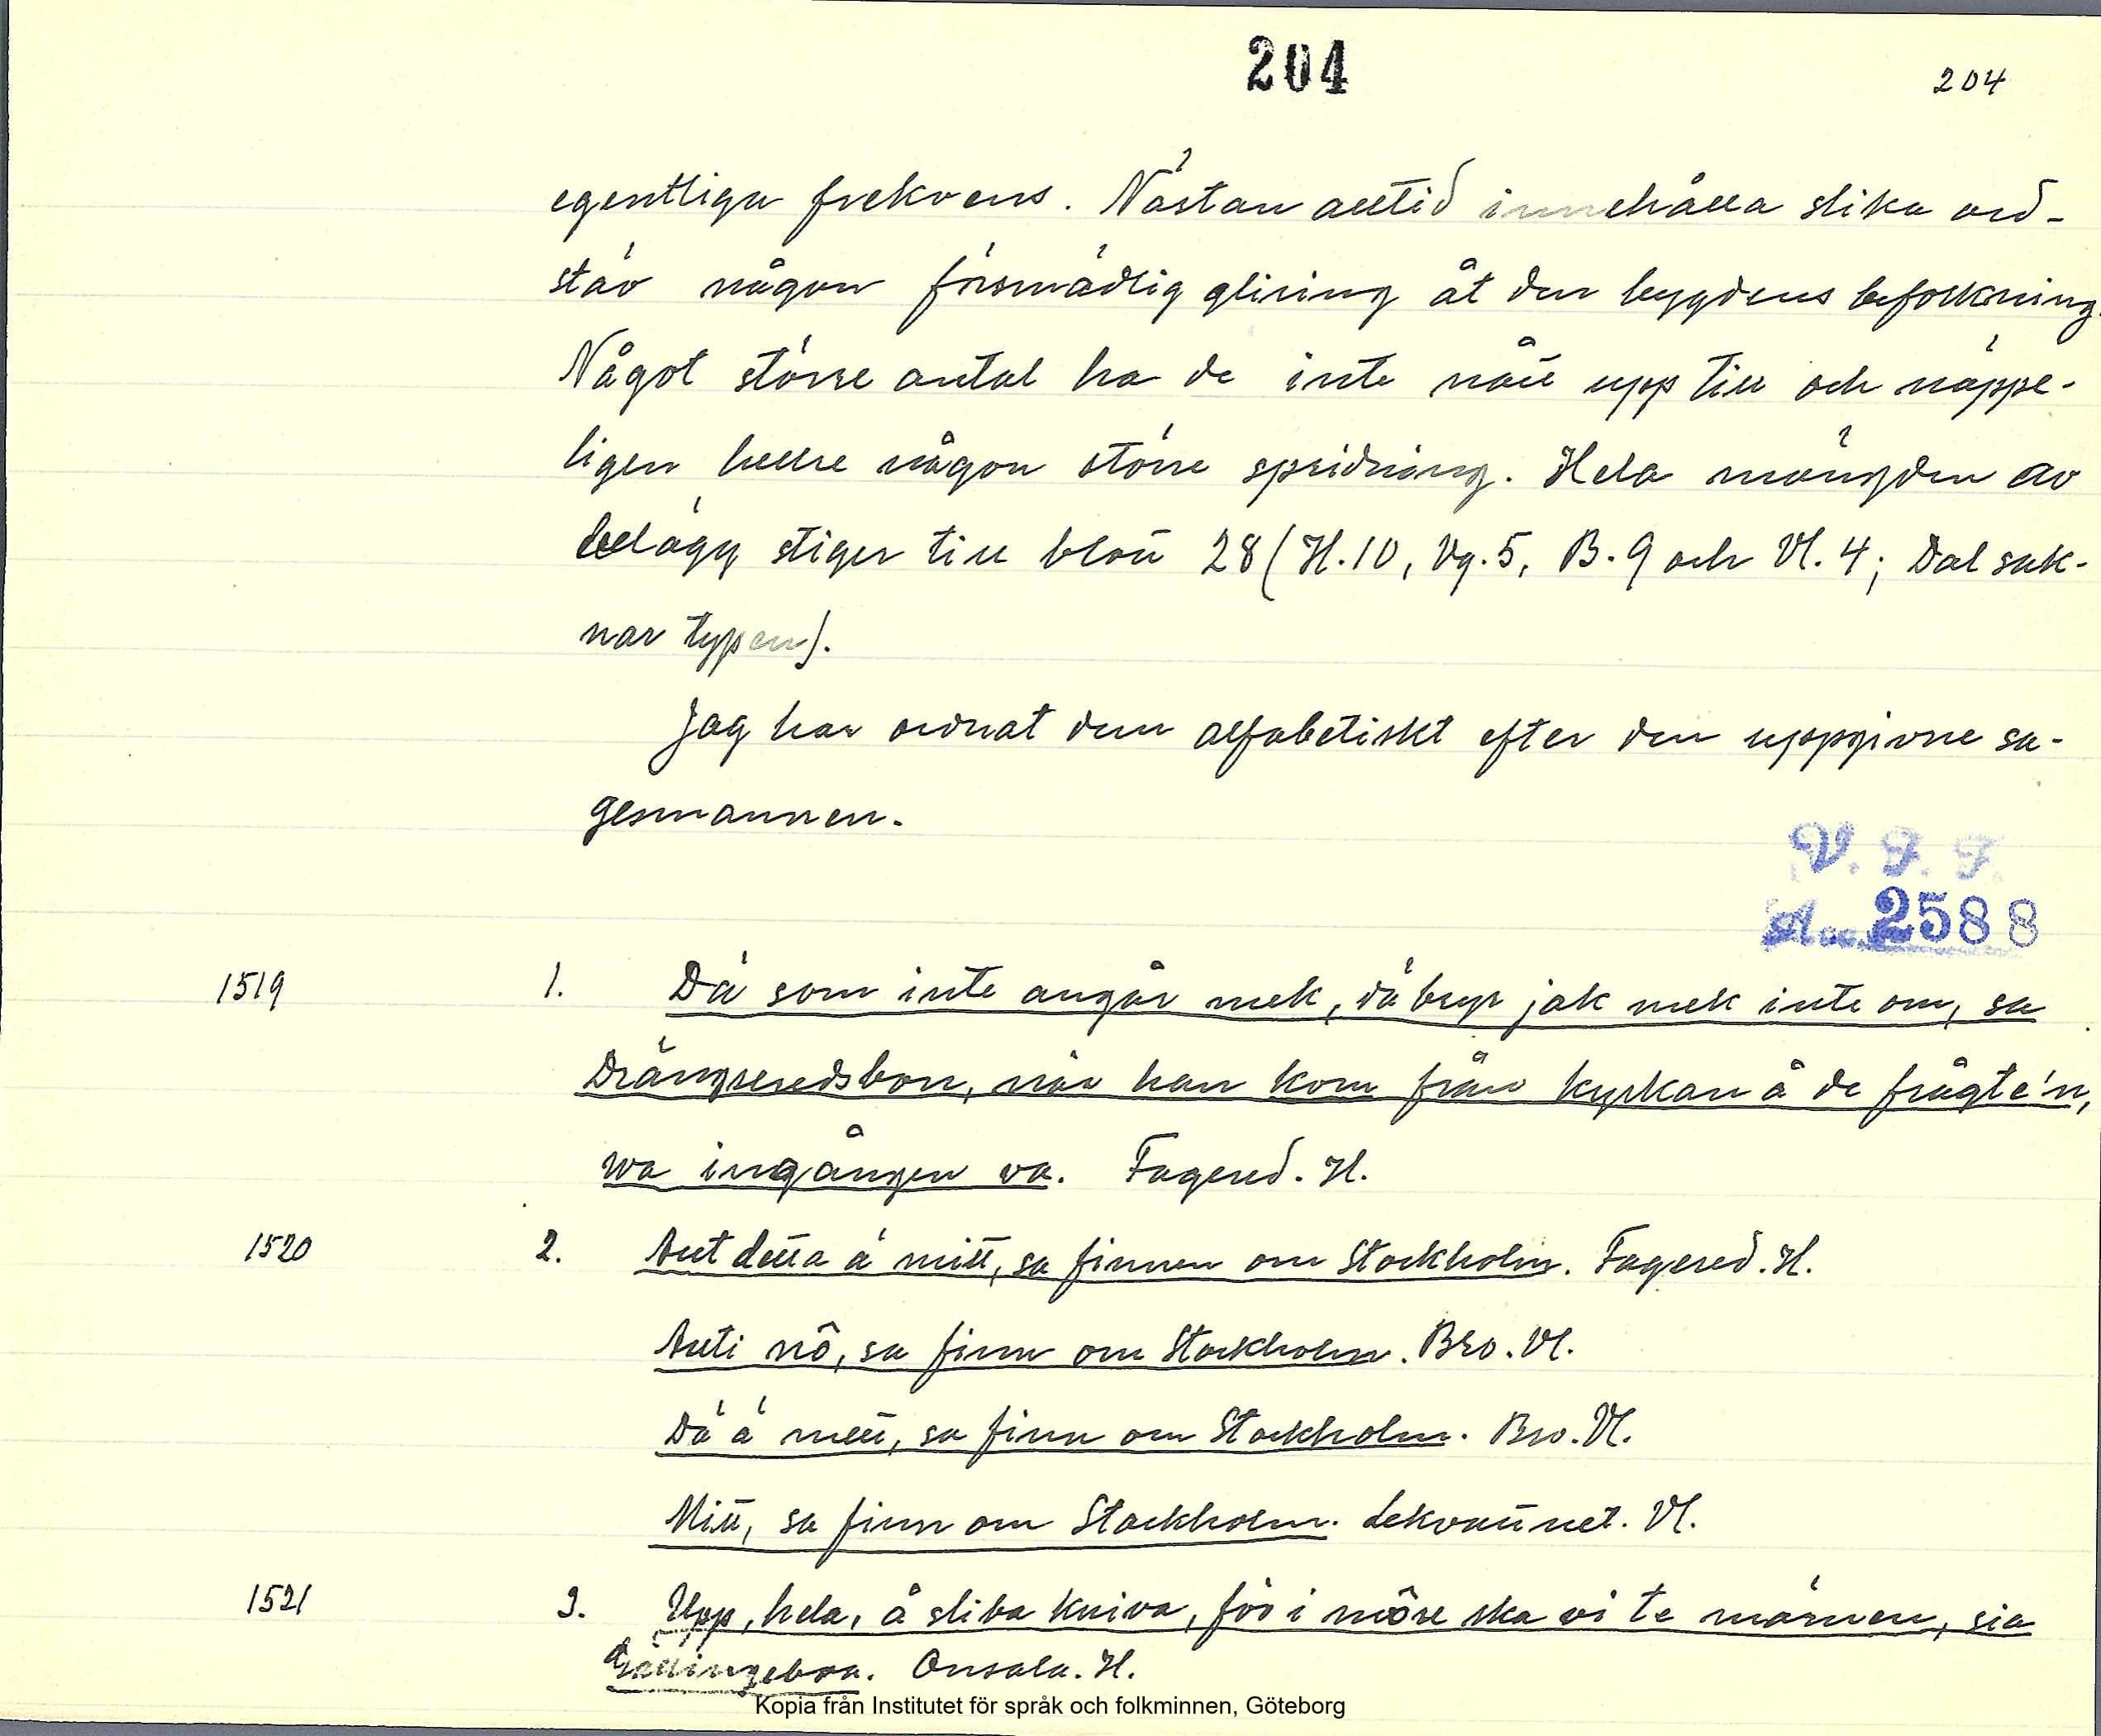 204
204
egentliga frekvens. Nästan alltid innehålla slika ord-
stäv någon försmädlig glirning åt den bygdens befolkning.
Något större antal ha de inte nått upp till och näppe-
ligen heller någon större spridning. Hela mängden av
belägg stiger till blott 28 (H. 10, Vg. 5, B. 9 och Vl. 4; Dal sak-
nar typen).
Jag har ordnat dem alfabetiskt efter den uppgivne sa-
gesmannen.
V. F. F.
Acc. 2588
1519 1. Dä som inte angår mek, dä bryr jak mek inte om, sa
Drängseredsbon, när han kom från kyrkan å de frågte'n,
va ingången va. Fagered. H.
1520 2. Allt detta ä mitt, sa finnen om Stockholm. Fagered. H.
Allti nô, sa finn om Stockholm. Bro. Vl.
Dä ä mett, sa finn om Stockholm. Bro. Vl.
Mitt, sa finn om Stockholm. Lekvattnet. Vl.
1521 3. Upp, hela, å sliba kniva, för i môre ska vi te märnen, sia
Onsala. H.
Kopia från Institutet för språk och folkminnen, Göteborg